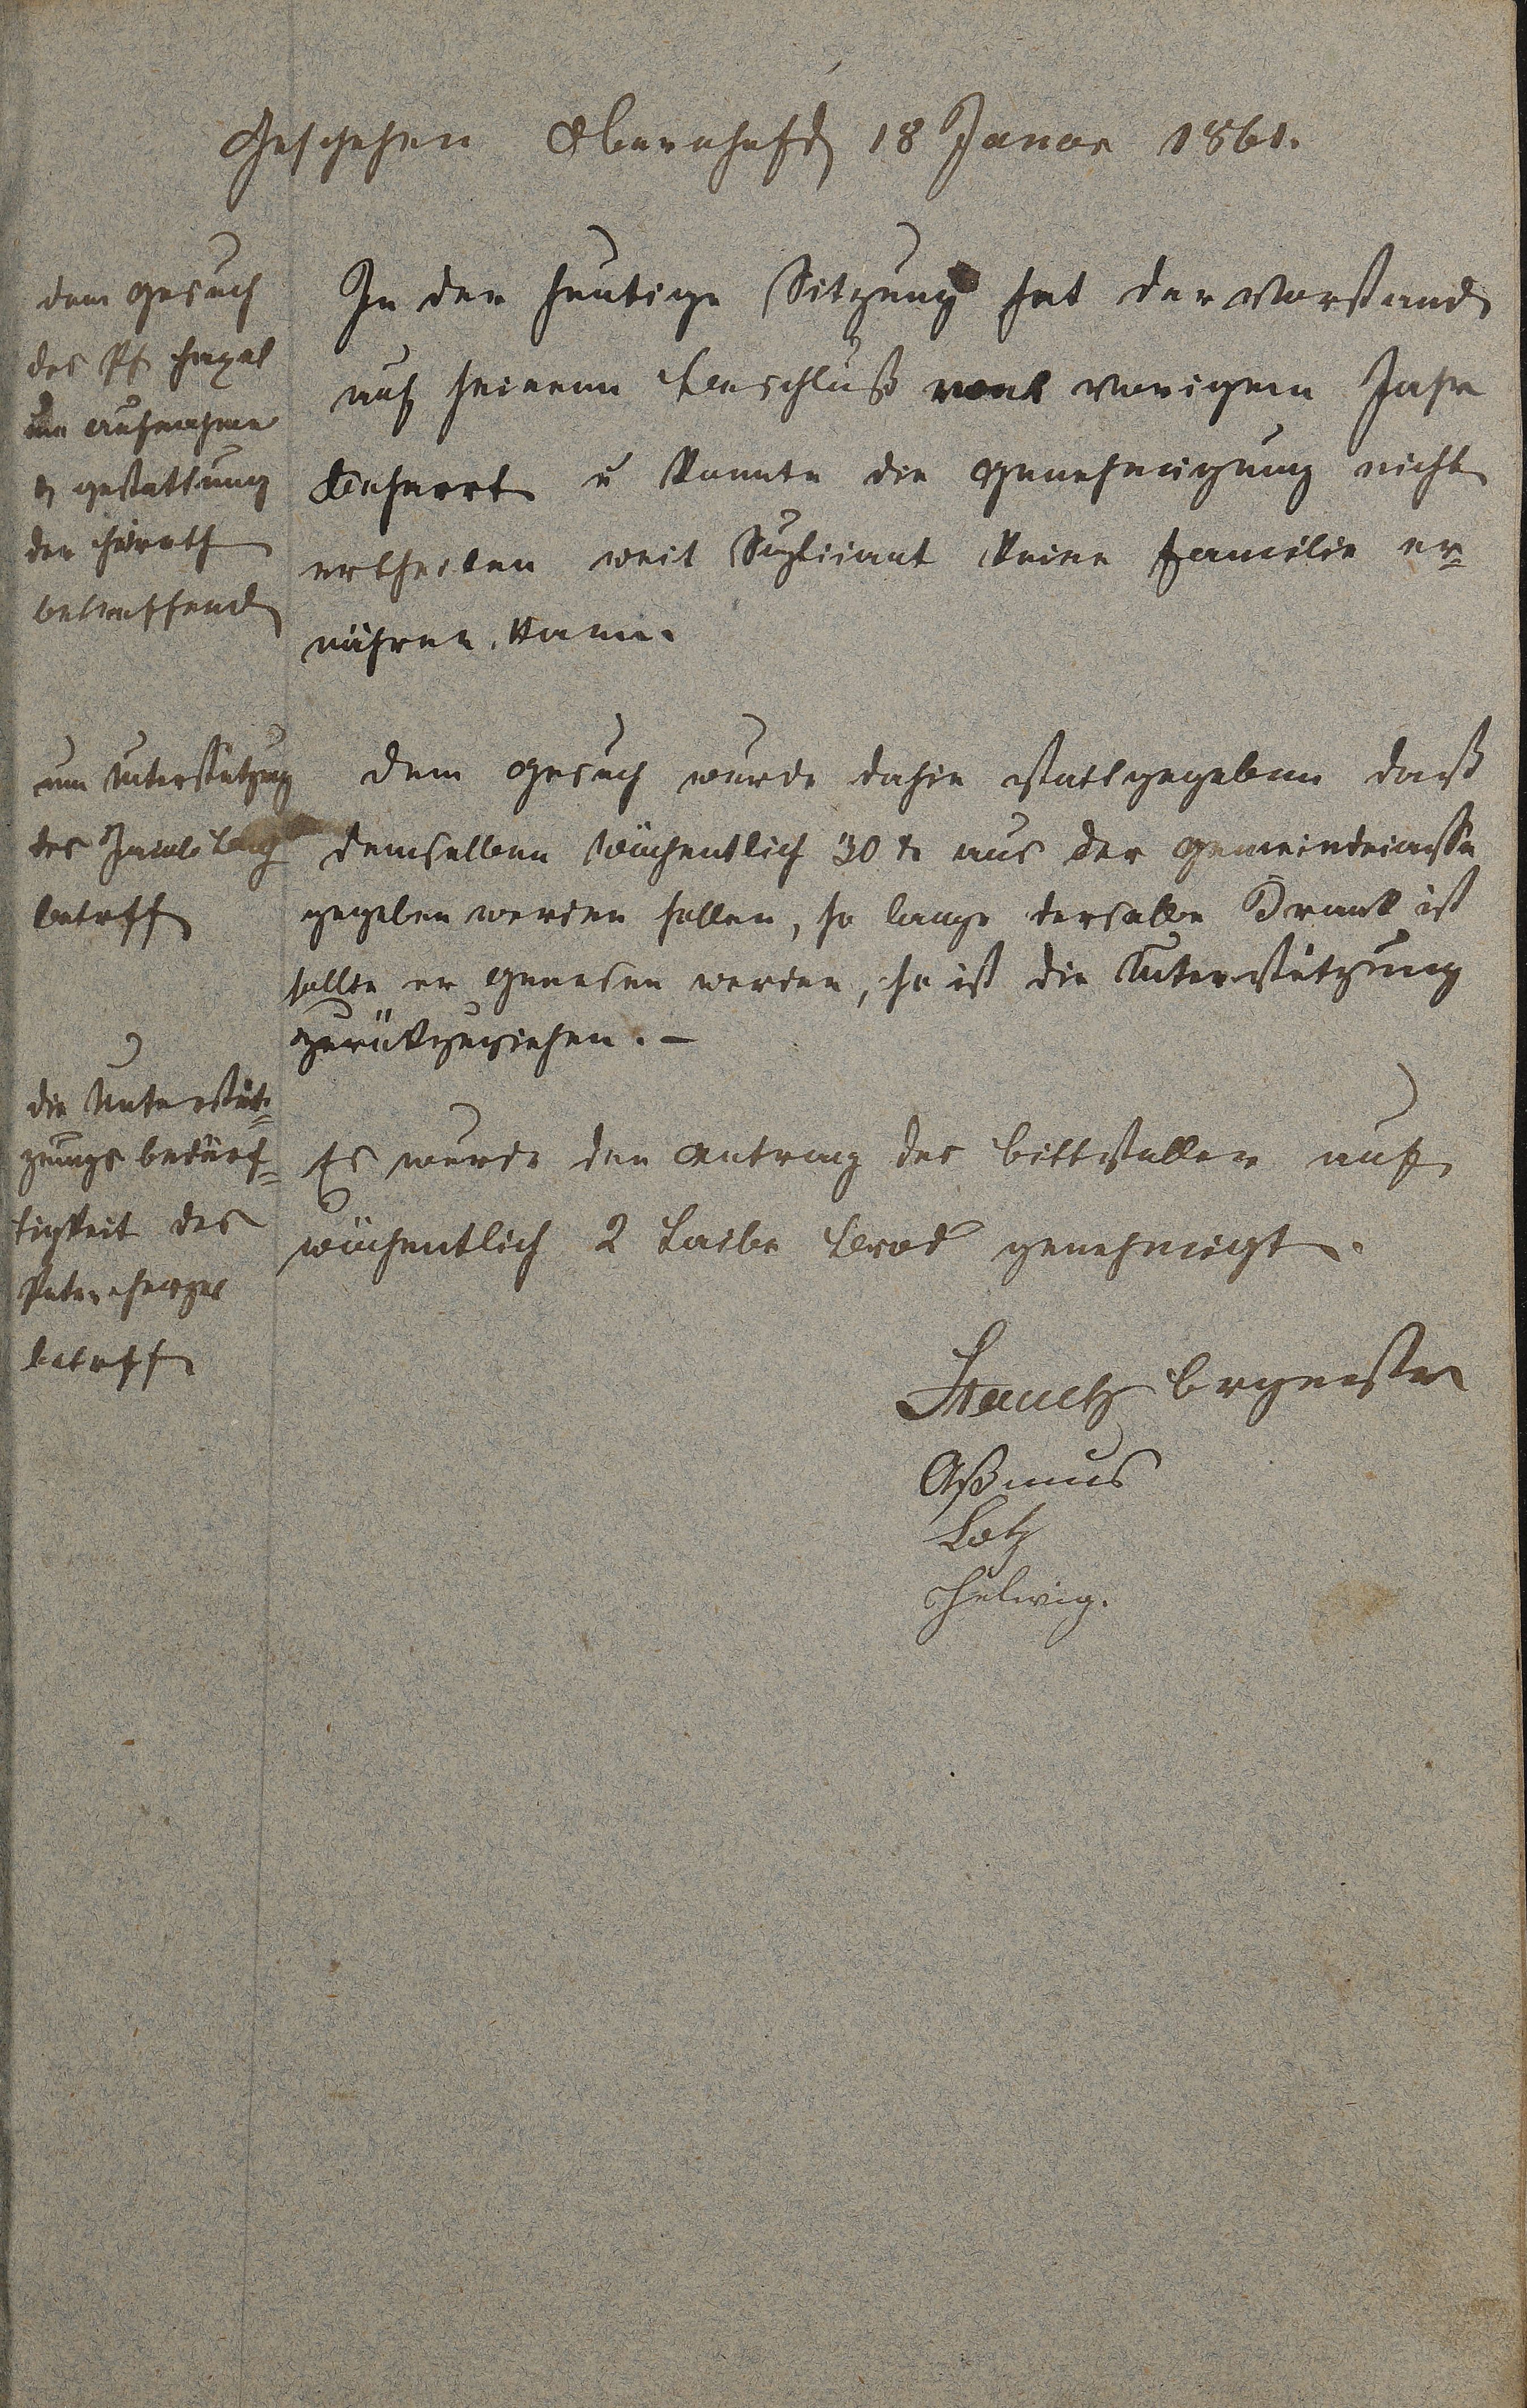 Geschehen Obernhof d 18 Januar 1861.
dem Gesuch
des Pf
um Aufnahme
u gestattung
der Heirath
betreffend
In der heutige Sitzung hat der Vorstand
auf seinem Beschluß von vorigem Jahr
beharrt u konnte die Genehmigung nicht
ertheilen weil Suplicant keine Familie er-
nähren kann.
um Unterstützung
des Jacob
betreff
Dem Gesuch wurde dahin stattgegeben daß
demselben wöchentlich 30 x aus der Gemeindecasse
gegeben werden sollen, so lange derselbe Krank ist
sollte er genesen werden, so ist die Unterstützung
zurückzuziehen. -
die Unterstüt-
zungs bedürf-
tigkeit des
Peter
betreff
Es wurde der Antrag des Bittstellers auf
wöchentlich 2 Laibe Brod genehmigt.
Brgmeister
Aßmus
Lotz
Helwig.